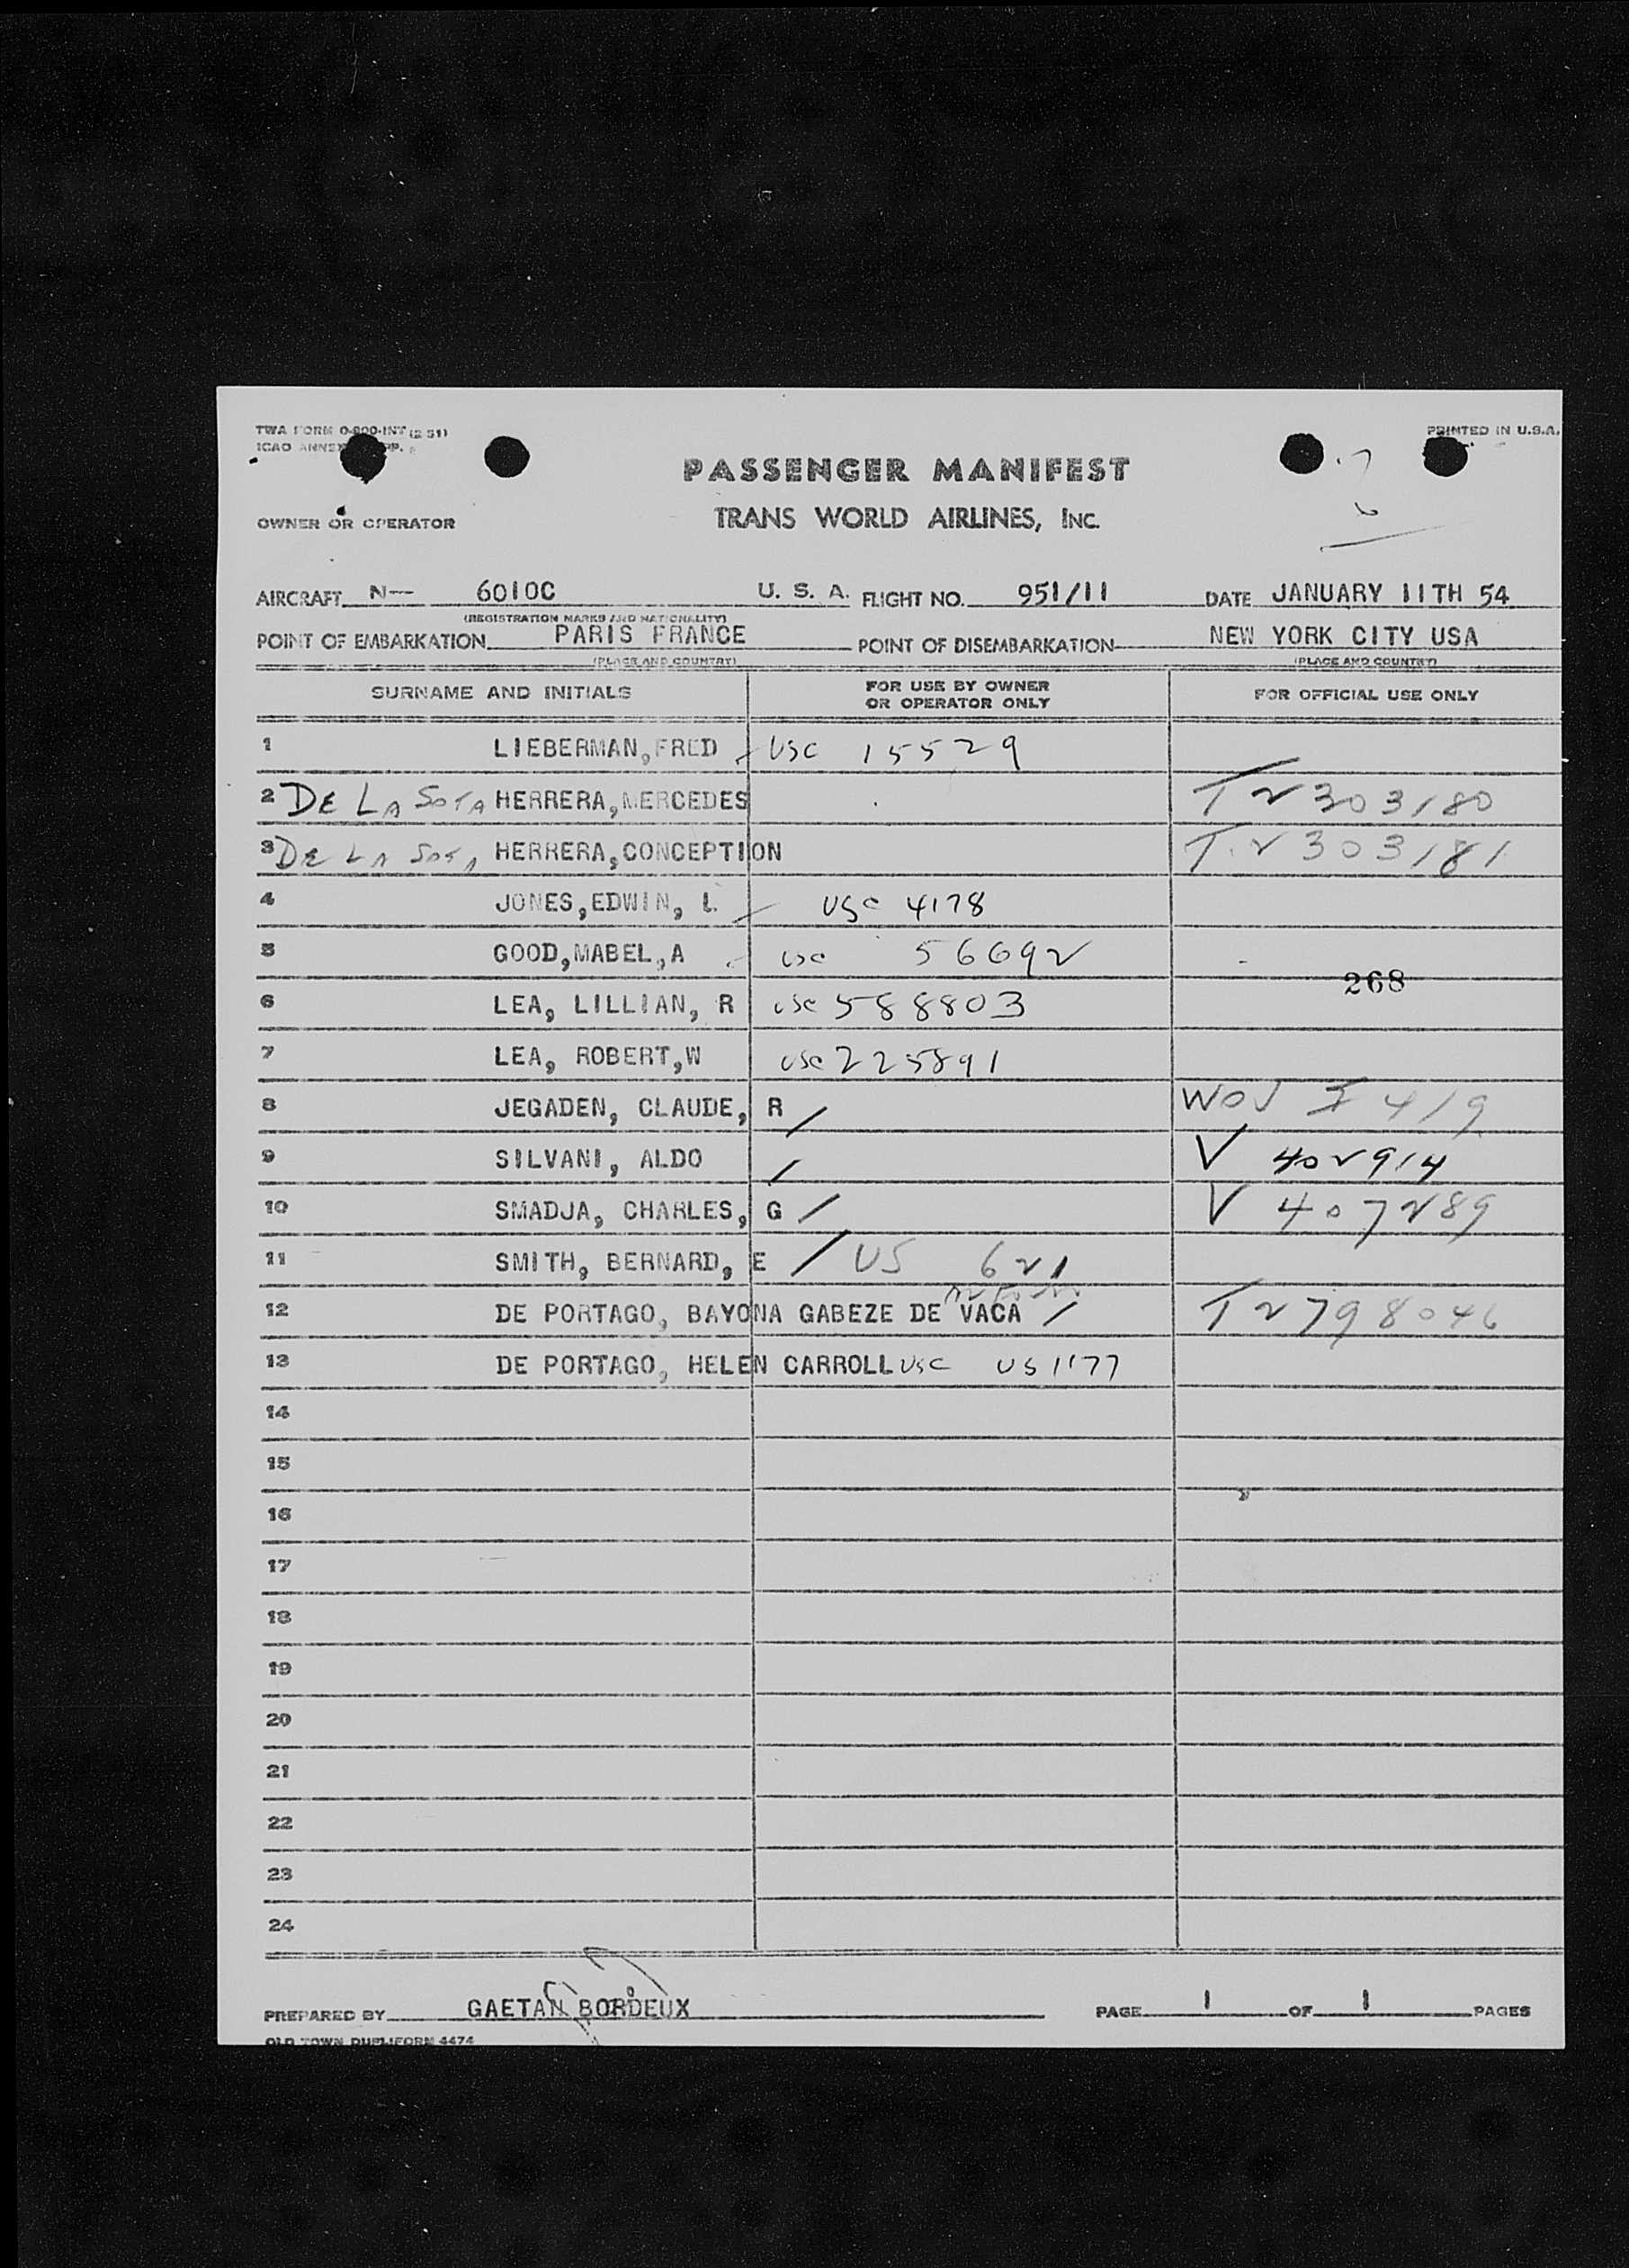 TWA FORM 0-800-INT (2-51)
PRINTED IN U.S.A.
ICAO ANNEX
PASSENGER MANIFEST
OWNER OR OPERATOR
TRANS WORLD AIRLINES, INC.
AIRCRAFT N-- 6010C U. S. A. FLIGHT NO. 951/11 DATE JANUARY 11TH 54
(REGISTRATION MARKS AND NATIONALITY)
POINT OF EMBARKATION PARIS FRANCE POINT OF DISEMBARKATION NEW YORK CITY USA
(PLACE AND COUNTRY) (PLACE AND COUNTRY)
SURNAME AND INITIALS FOR USE BY OWNER OR OPERATOR ONLY FOR OFFICIAL USE ONLY
1 LIEBERMAN,FRED USC 15529
2 DE LA SOTA HERRERA,MERCEDES T2303180
3 DE LA SOTA HERRERA,CONCEPTION T.2303181
4 JONES,EDWIN, L. USC 4178
5 GOOD,MABEL,A USC 56692
268
6 LEA, LILLIAN, R USC 588803
7 LEA, ROBERT,W USC 225891
8 JEGADEN, CLAUDE, R / WOV I 419
9 SILVANI, ALDO / V 402914
10 SMADJA, CHARLES, G / V 407289
11 SMITH, BERNARD, E / US 621
12 DE PORTAGO, BAYONA GABEZE DE VACA / T2798046
13 DE PORTAGO, HELEN CARROLL USC US 1177
14
15
16
17
18
19
20
21
22
23
24
PREPARED BY GAETAN BORDEUX PAGE 1 OF 1 PAGES
OLD TOWN DUPLIFORM 4474